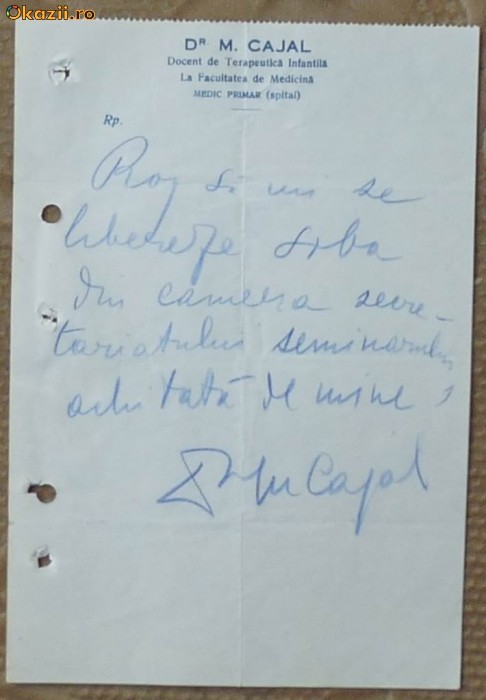 Okazii.ro
Dr M. CAJAL
Docent de Terapeutică Infantilă
La Facultatea de Medicină
MEDIC PRIMAR (spital)
Rp.
Rog să mi se
libereze soba
din camera secre-
tariatului seminarului
achitată de mine
Dr M Cajal